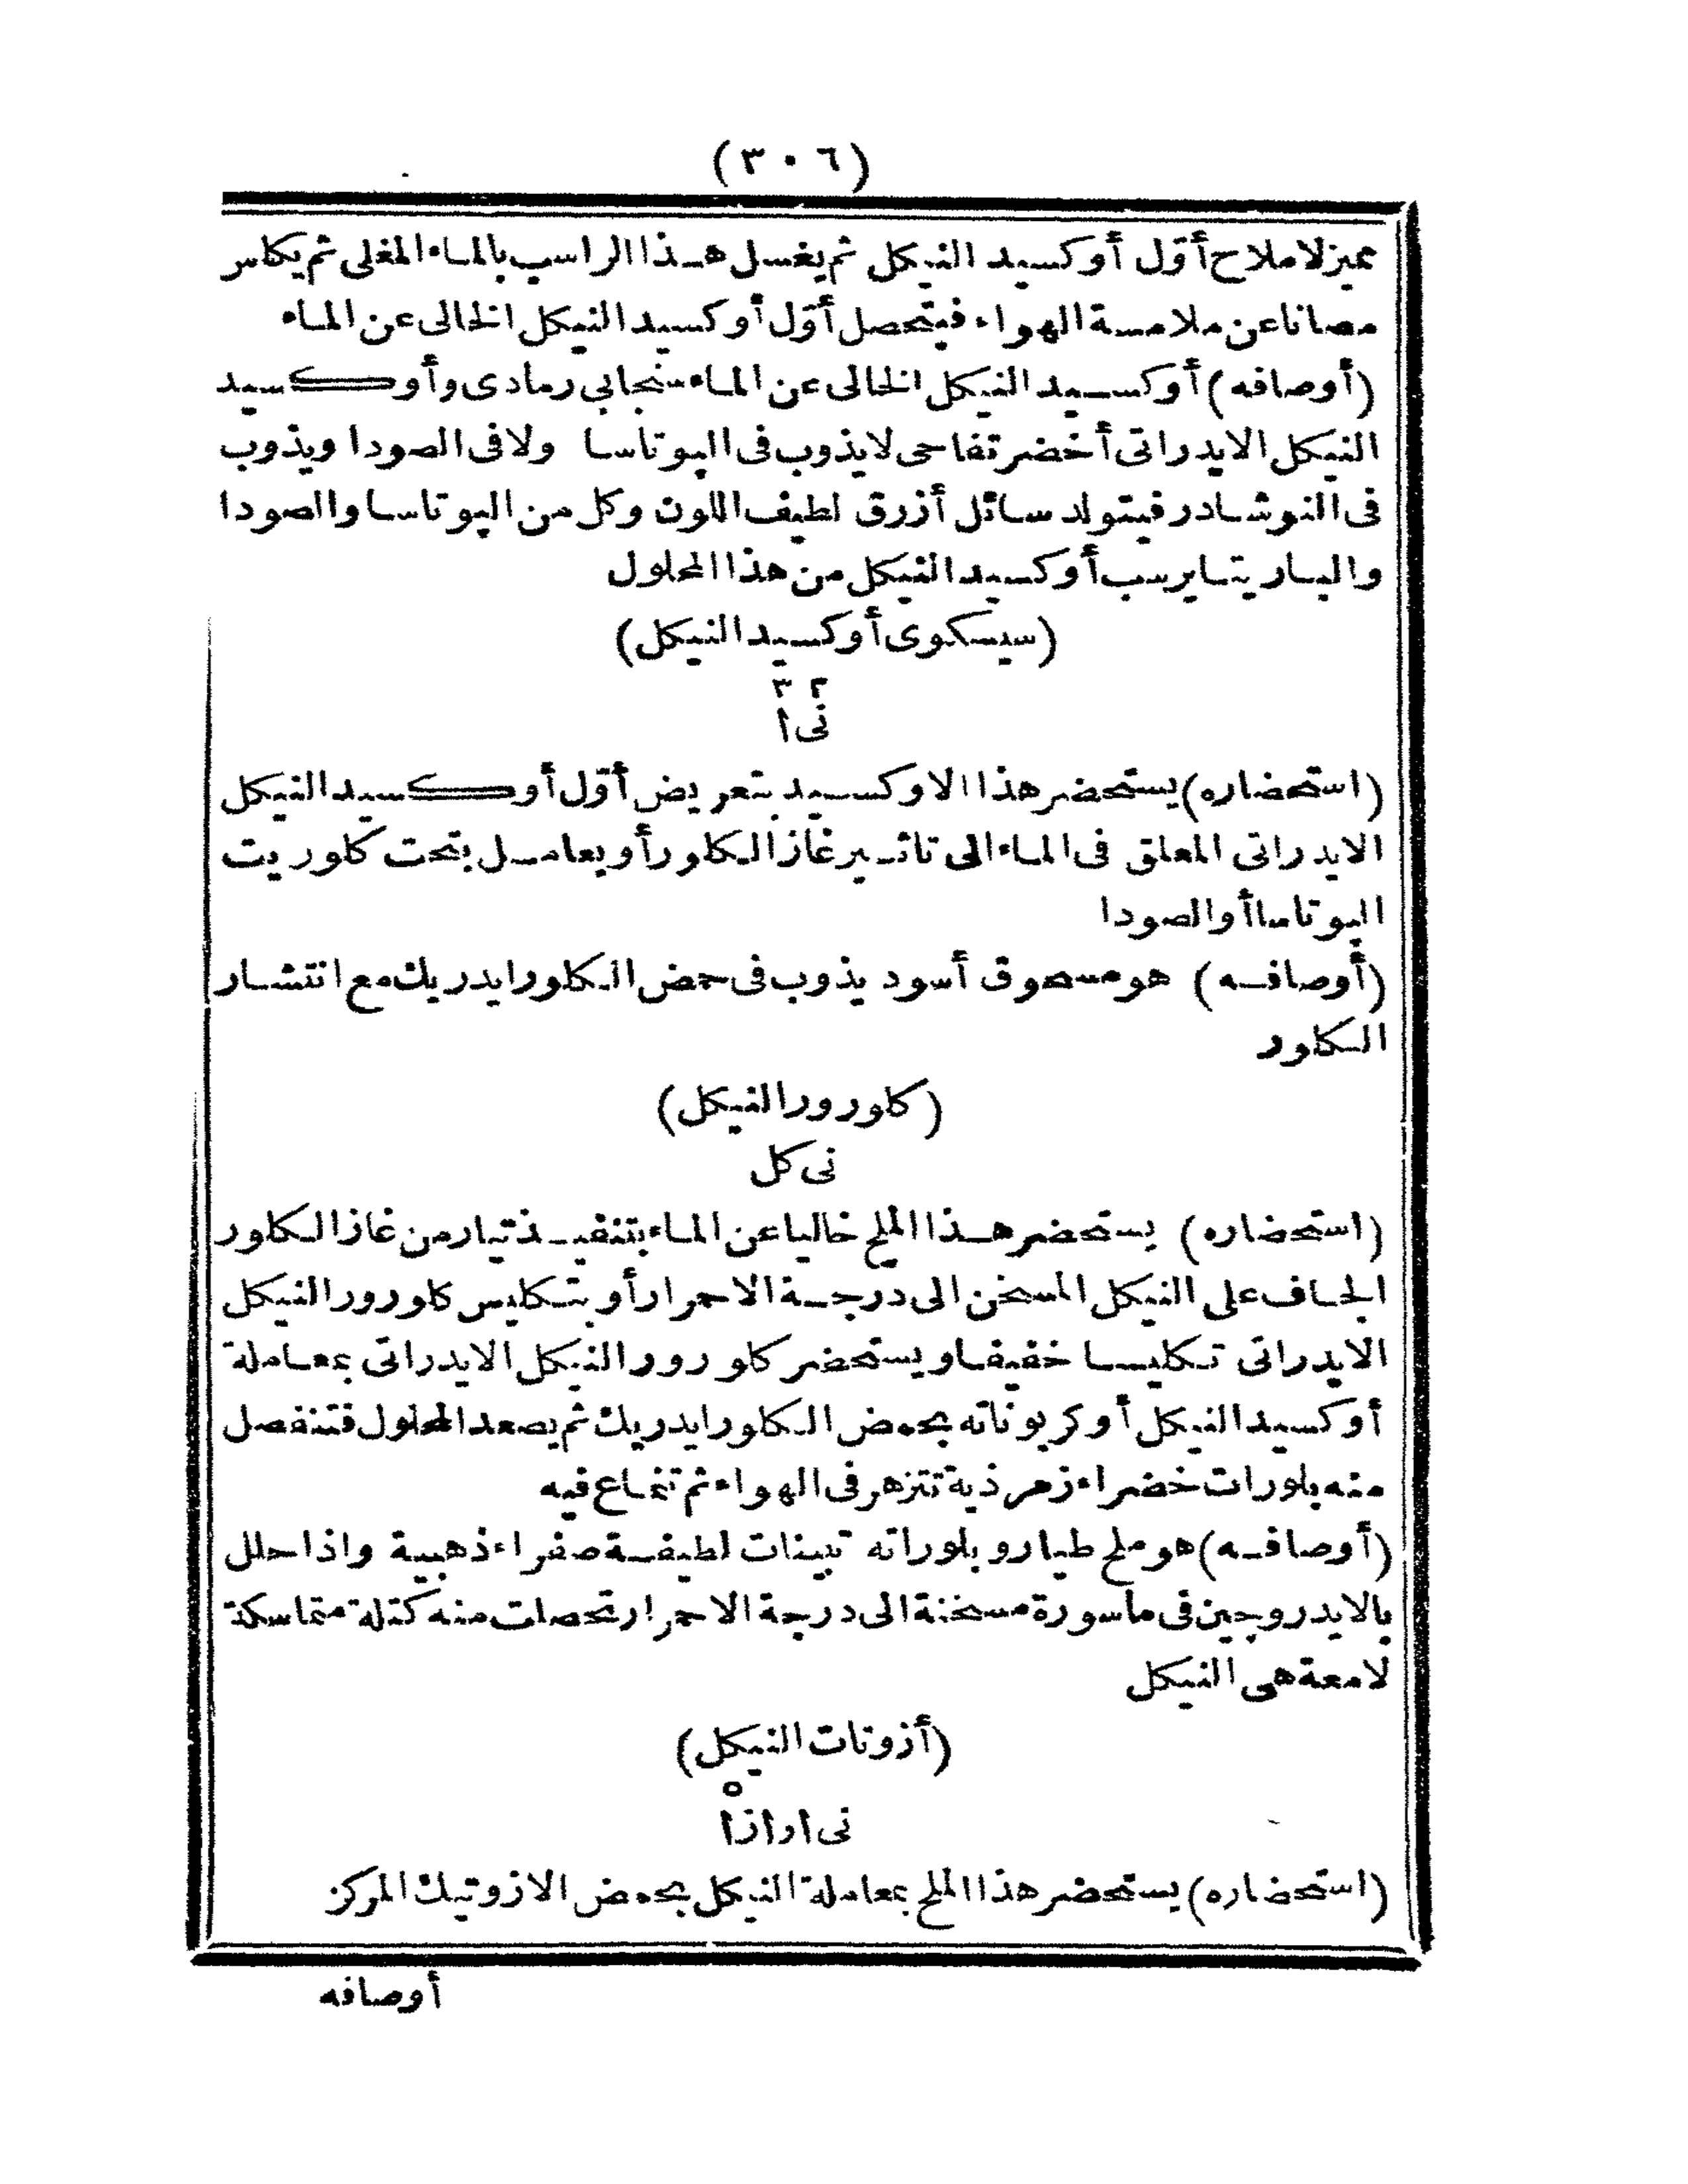 (٣٠٦)
مميز لاملاح أوّل أوكسيد النيكل ثم يغسل هذا الراسب بالماء المغلى ثم يكلس
مصانا عن ملامسة الهواء فيتحصل أوّل أوكسيد النيكل الخالى عن الماء
(أوصافه) أوكسيد النيكل الخالى عن الماء سنجابى رمادى وأوكسيد
النيكل الايدراتى أخضر تفاحى لايذوب فى الپوتاسا ولا فى الصودا ويذوب
فى النوشادر فيتولد سائل أزرق لطيف اللون وكل من الپوتاسا والصودا
والباريتا يرسب أوكسيد النيكل من هذا المحلول
(سيسكوى أوكسيد النيكل)
٢ ٣
نى ا
(استحضاره) يستحضر هذا الاوكسيد بتعريض أوّل أوكسيد النيكل
الايدراتى المعلق فى الماء الى تاثير غاز الكلور أو يعامل بتحت كلوريت
الپوتاسا أو الصودا
(أوصافه) هو مسحوق أسود يذوب فى حمض الكلورايدريك مع انتشار
الكلور
(كلورور النيكل)
نى كل
(استحضاره) يستحضر هذا الملح خاليا عن الماء بتنفيذ تيار من غاز الكلور
الجاف على النيكل المسخن الى درجة الاحمرار أو بتكليس كلورور النيكل
الايدراتى تكليسا خفيفا ويستحضر كلورور النيكل الايدراتى بمعاملة
أوكسيد النيكل أوكربوناته بحمض الكلورايدريك ثم يصعد المحلول فتنفصل
منه بلورات خضراء زمرذية تتزهر فى الهواء ثم تنماع فيه
(أوصافه) هو ملح طيار وبلوراته تبينات لطيفة صفراء ذهبية واذا حلل
بالايدروچين فى ماسورة مسخنة الى درجة الاحمرار تحصلت منه كتلة متماسكة
لامعة هى النيكل
(أزوتات النيكل)
٥
نى ا ر ا ز ا
(استحضاره) يستحضر هذا الملح بمعاملة النيكل بحمض الازوتيك المركز
أوصافه